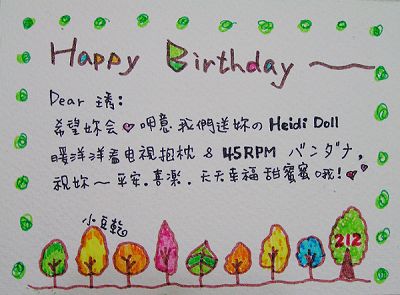 Happy Birthday ~
Dear 靖:
希望妳会♥呷意 我們送妳の Heidi Doll
暖洋洋看电視抱枕 & 45RPM バンダナ,
祝妳～平安.喜樂.天天幸福甜蜜蜜哦!♥
小豆乾
212